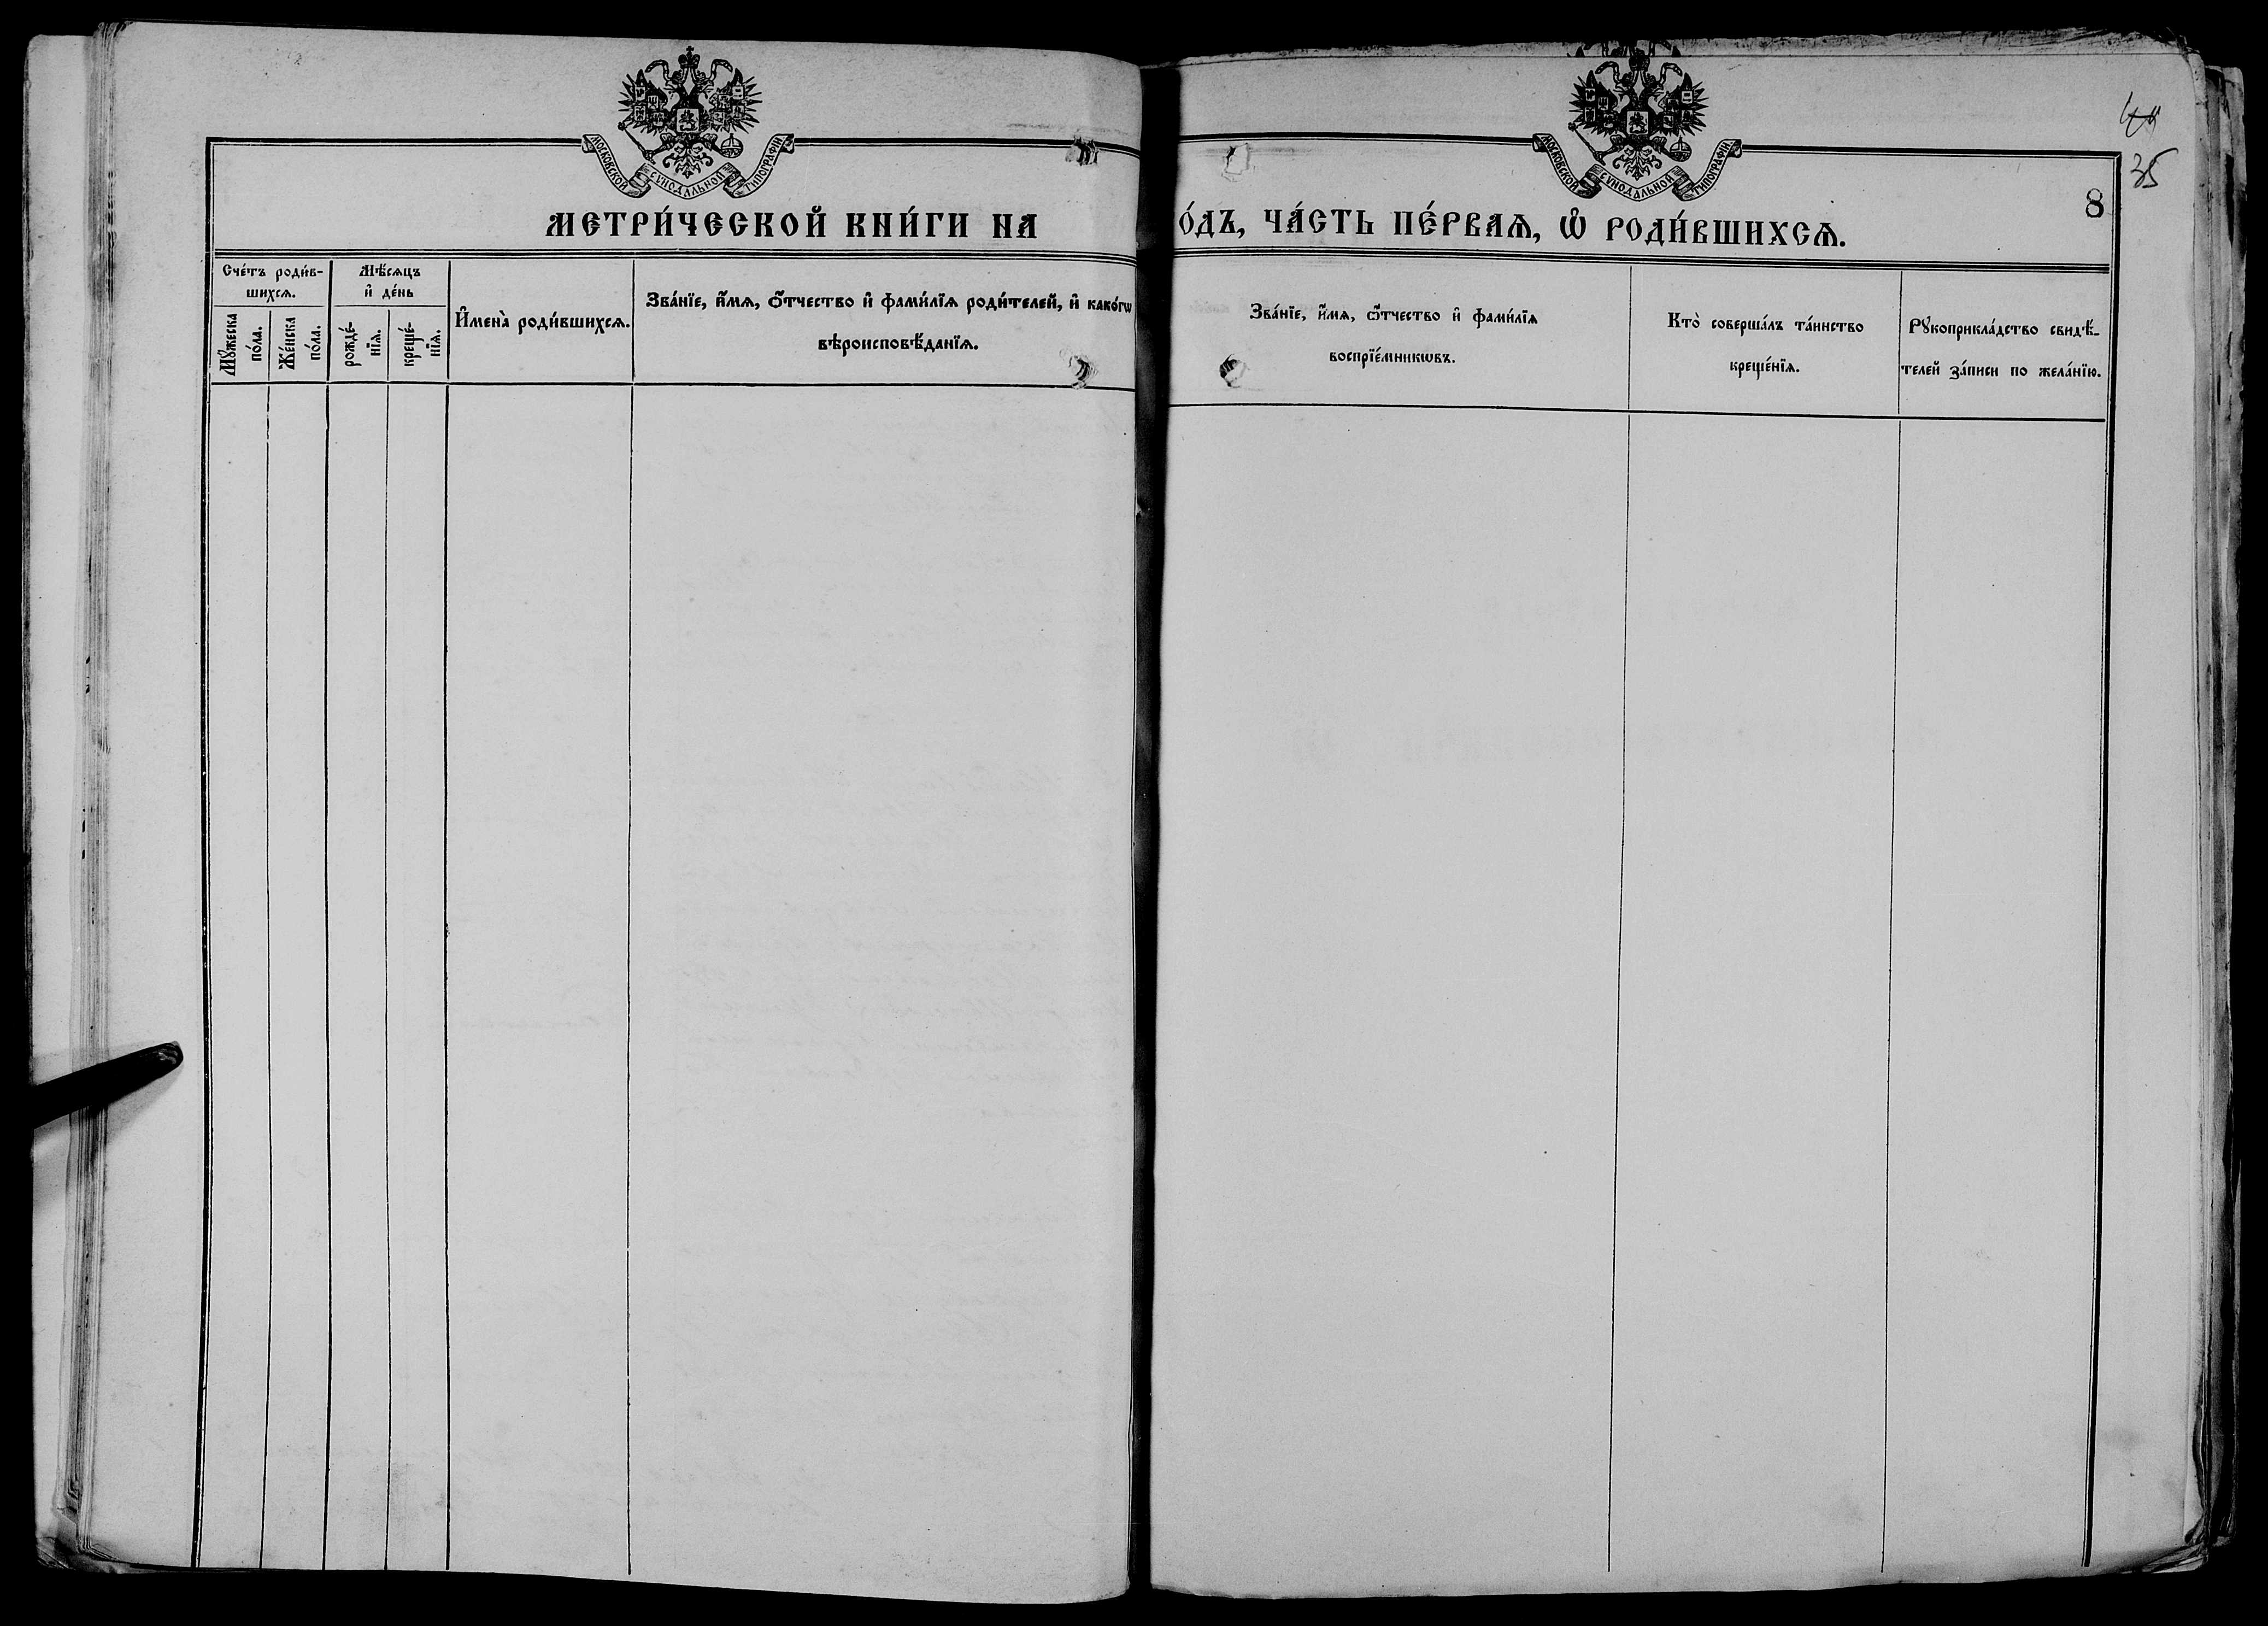 МОСКОВСКОЙ СѴНОДАЛЬНОЙ ТИПОГРАФІИ
МЕТРИ́ЧЕСКОЙ КНИ́ГИ НА
Сче́тъ роди́в-
шихсѧ.
Мѣ́сѧцъ
и҆ де́нь
Мꙋ́жеска
по́ла.
Же́нска
по́ла.
рожде́-
нїѧ.
креще́-
нїѧ.
И҆мена̀ роди́вшихсѧ.
Зва́нїе, и҆́мѧ, ѻ҆́тчество и҆ фами́лїѧ роди́телей, и҆ како́гѡ
вѣроисповѣ́данїѧ.
МОСКОВСКОЙ СѴНОДАЛЬНОЙ ТИПОГРАФІИ
35
8
О́ДЪ, ЧА́СТЬ ПЕ́РВАѦ, Ѡ҆ РОДИ́ВШИХСѦ.
Зва́нїе, и҆́мѧ, ѻ҆́тчество и҆ фами́лїѧ
воспрїе́мникѡвъ.
Кто̀ соверша́лъ та́инство
креще́нїѧ.
Рꙋкоприкла́дство свидѣ́-
телей за́писи по жела́нїю.